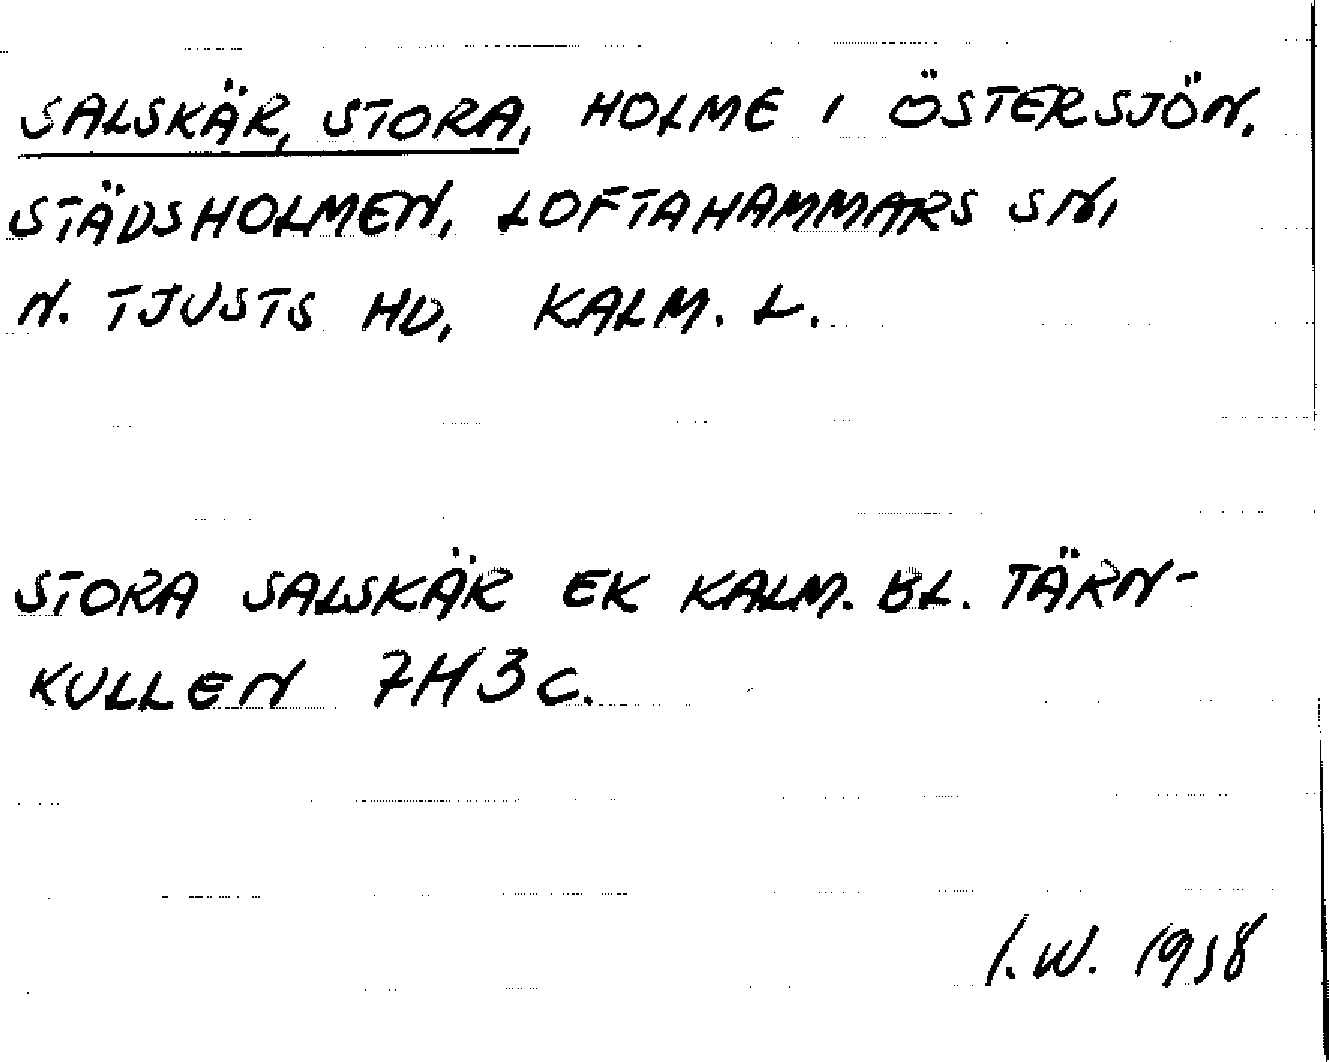 SALSKÄR, STORA, HOLME I ÖSTERSJÖN,
STÄDSHOLMEN, LOFTAHAMMARS SN,
N. TJUSTS HD, KALM. L.
STORA SALSKÄR EK KALM. BL. TÄRN-
KULLEN 7H3c.
I.W. 1958